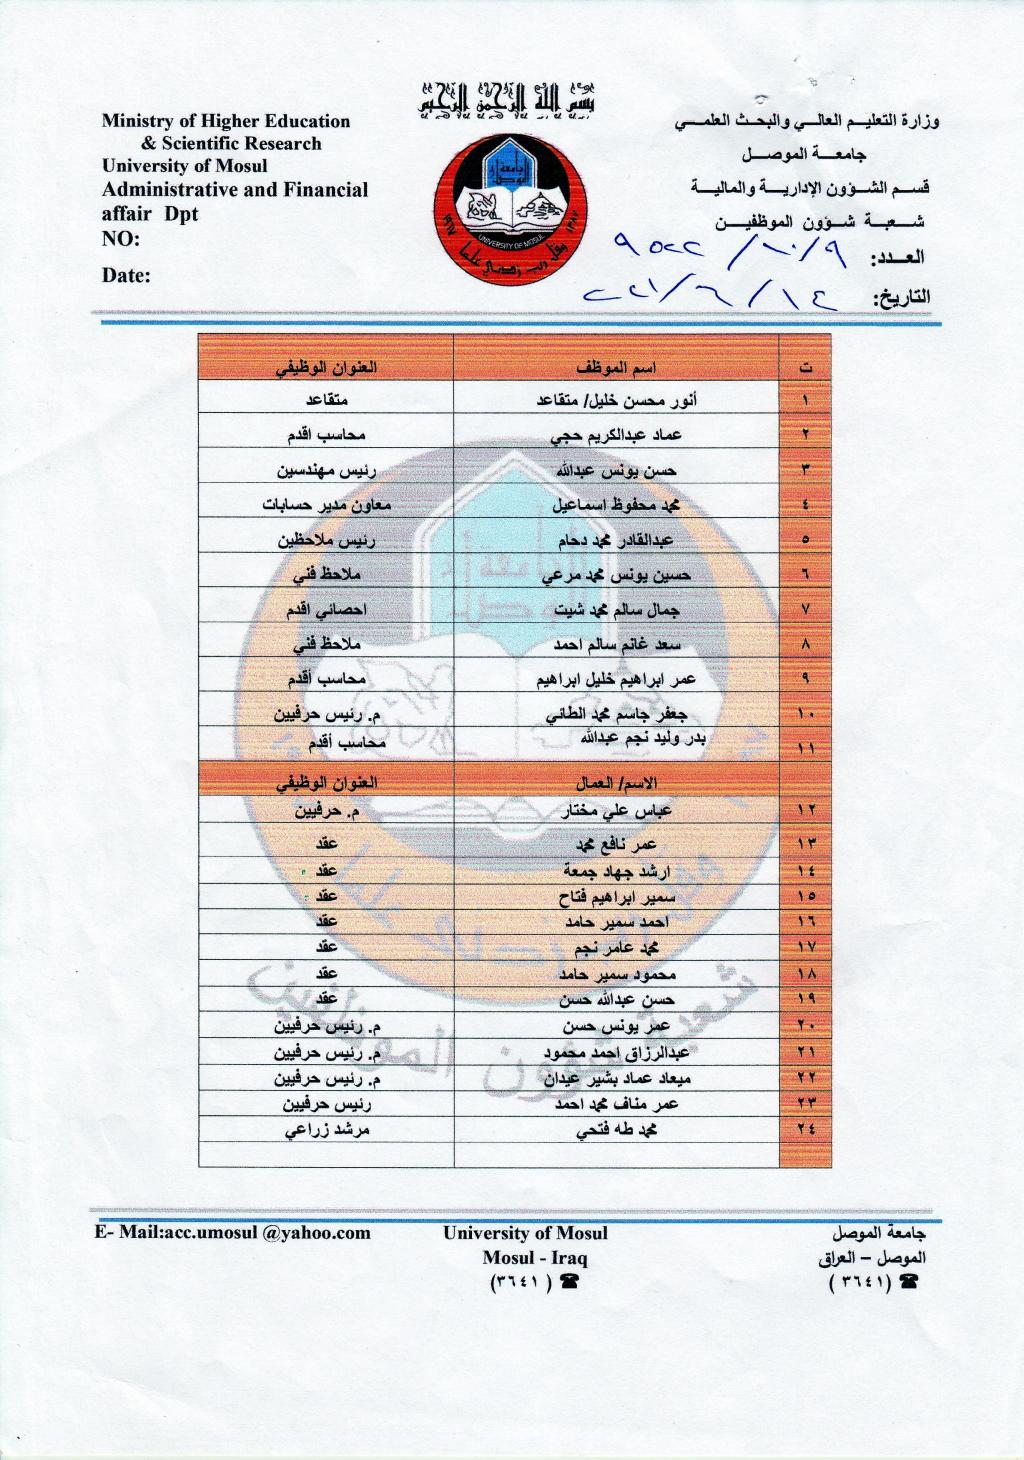 بسم الله الرحمن الرحيم
Ministry of Higher Education
& Scientific Research
University of Mosul
Administrative and Financial
affair Dpt
NO:
Date:
وزارة التعليم العالي والبحث العلمي
جامعة الموصل
قسم الشؤون الإدارية والمالية
شعبة شؤون الموظفين
العدد: ٩/١٠/
التاريخ: ١٤/٦/
جامعة الموصل
UNIVERSITY OF MOSUL
وقل رب زدني علما
١٩٦٧
١٣٨٧
ت اسم الموظف العنوان الوظيفي
١ أنور محسن خليل/ متقاعد متقاعد
٢ عماد عبدالكريم حجي محاسب اقدم
٣ حسن يونس عبدالله رئيس مهندسين
٤ محمد محفوظ اسماعيل معاون مدير حسابات
٥ عبدالقادر محمد دحام رئيس ملاحظين
٦ حسين يونس محمد مرعي ملاحظ فني
٧ جمال سالم محمد شيت احصائي اقدم
٨ سعد غانم سالم احمد ملاحظ فني
٩ عمر ابراهيم خليل ابراهيم محاسب أقدم
١٠ جعفر جاسم محمد الطائي م. رئيس حرفيين
١١ بدر وليد نجم عبدالله محاسب أقدم
الاسم/ العمال العنوان الوظيفي
١٢ عباس علي مختار م. حرفيين
١٣ عمر نافع محمد عقد
١٤ ارشد جهاد جمعة عقد
١٥ سمير ابراهيم فتاح عقد
١٦ احمد سمير حامد عقد
١٧ محمد عامر نجم عقد
١٨ محمود سمير حامد عقد
١٩ حسن عبدالله حسن عقد
٢٠ عمر يونس حسن م. رئيس حرفيين
٢١ عبدالرزاق احمد محمود م. رئيس حرفيين
٢٢ ميعاد عماد بشير عيدان م. رئيس حرفيين
٢٣ عمر مناف محمد احمد رئيس حرفيين
٢٤ محمد طه فتحي مرشد زراعي
شعبة شؤون الموظفين
E- Mail:acc.umosul @yahoo.com
University of Mosul
Mosul - Iraq
☎ (٣٦٤١)
جامعة الموصل
الموصل – العراق
☎ (٣٦٤١)